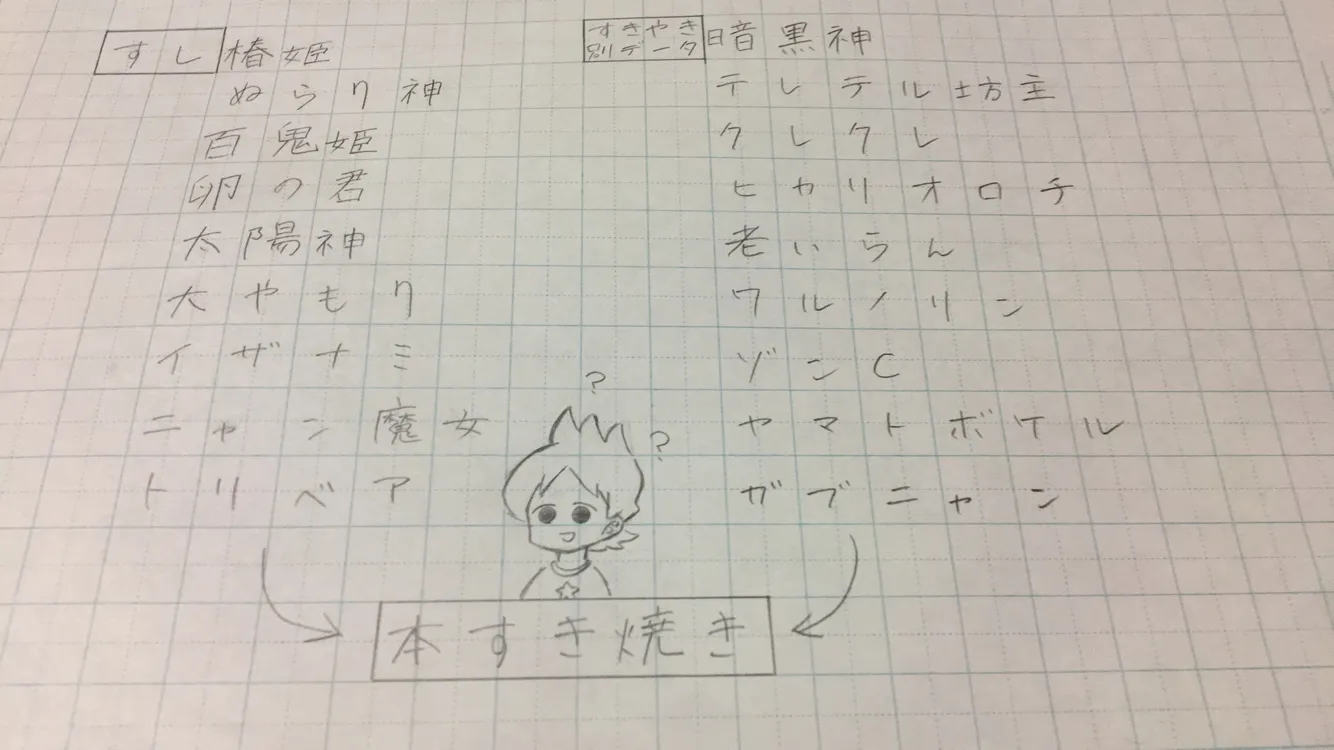 すし 椿姫
ぬらり神
百鬼姫
卵の君
太陽神
大やもり
イザナミ
ニャン魔女
トリベア
すきやき
別データ
暗黒神
テレテル坊主
クレクレ
ヒカリオロチ
老いらん
ワルノリン
ゾンC
ヤマトボケル
ガブニャン
?
?
本すき焼き